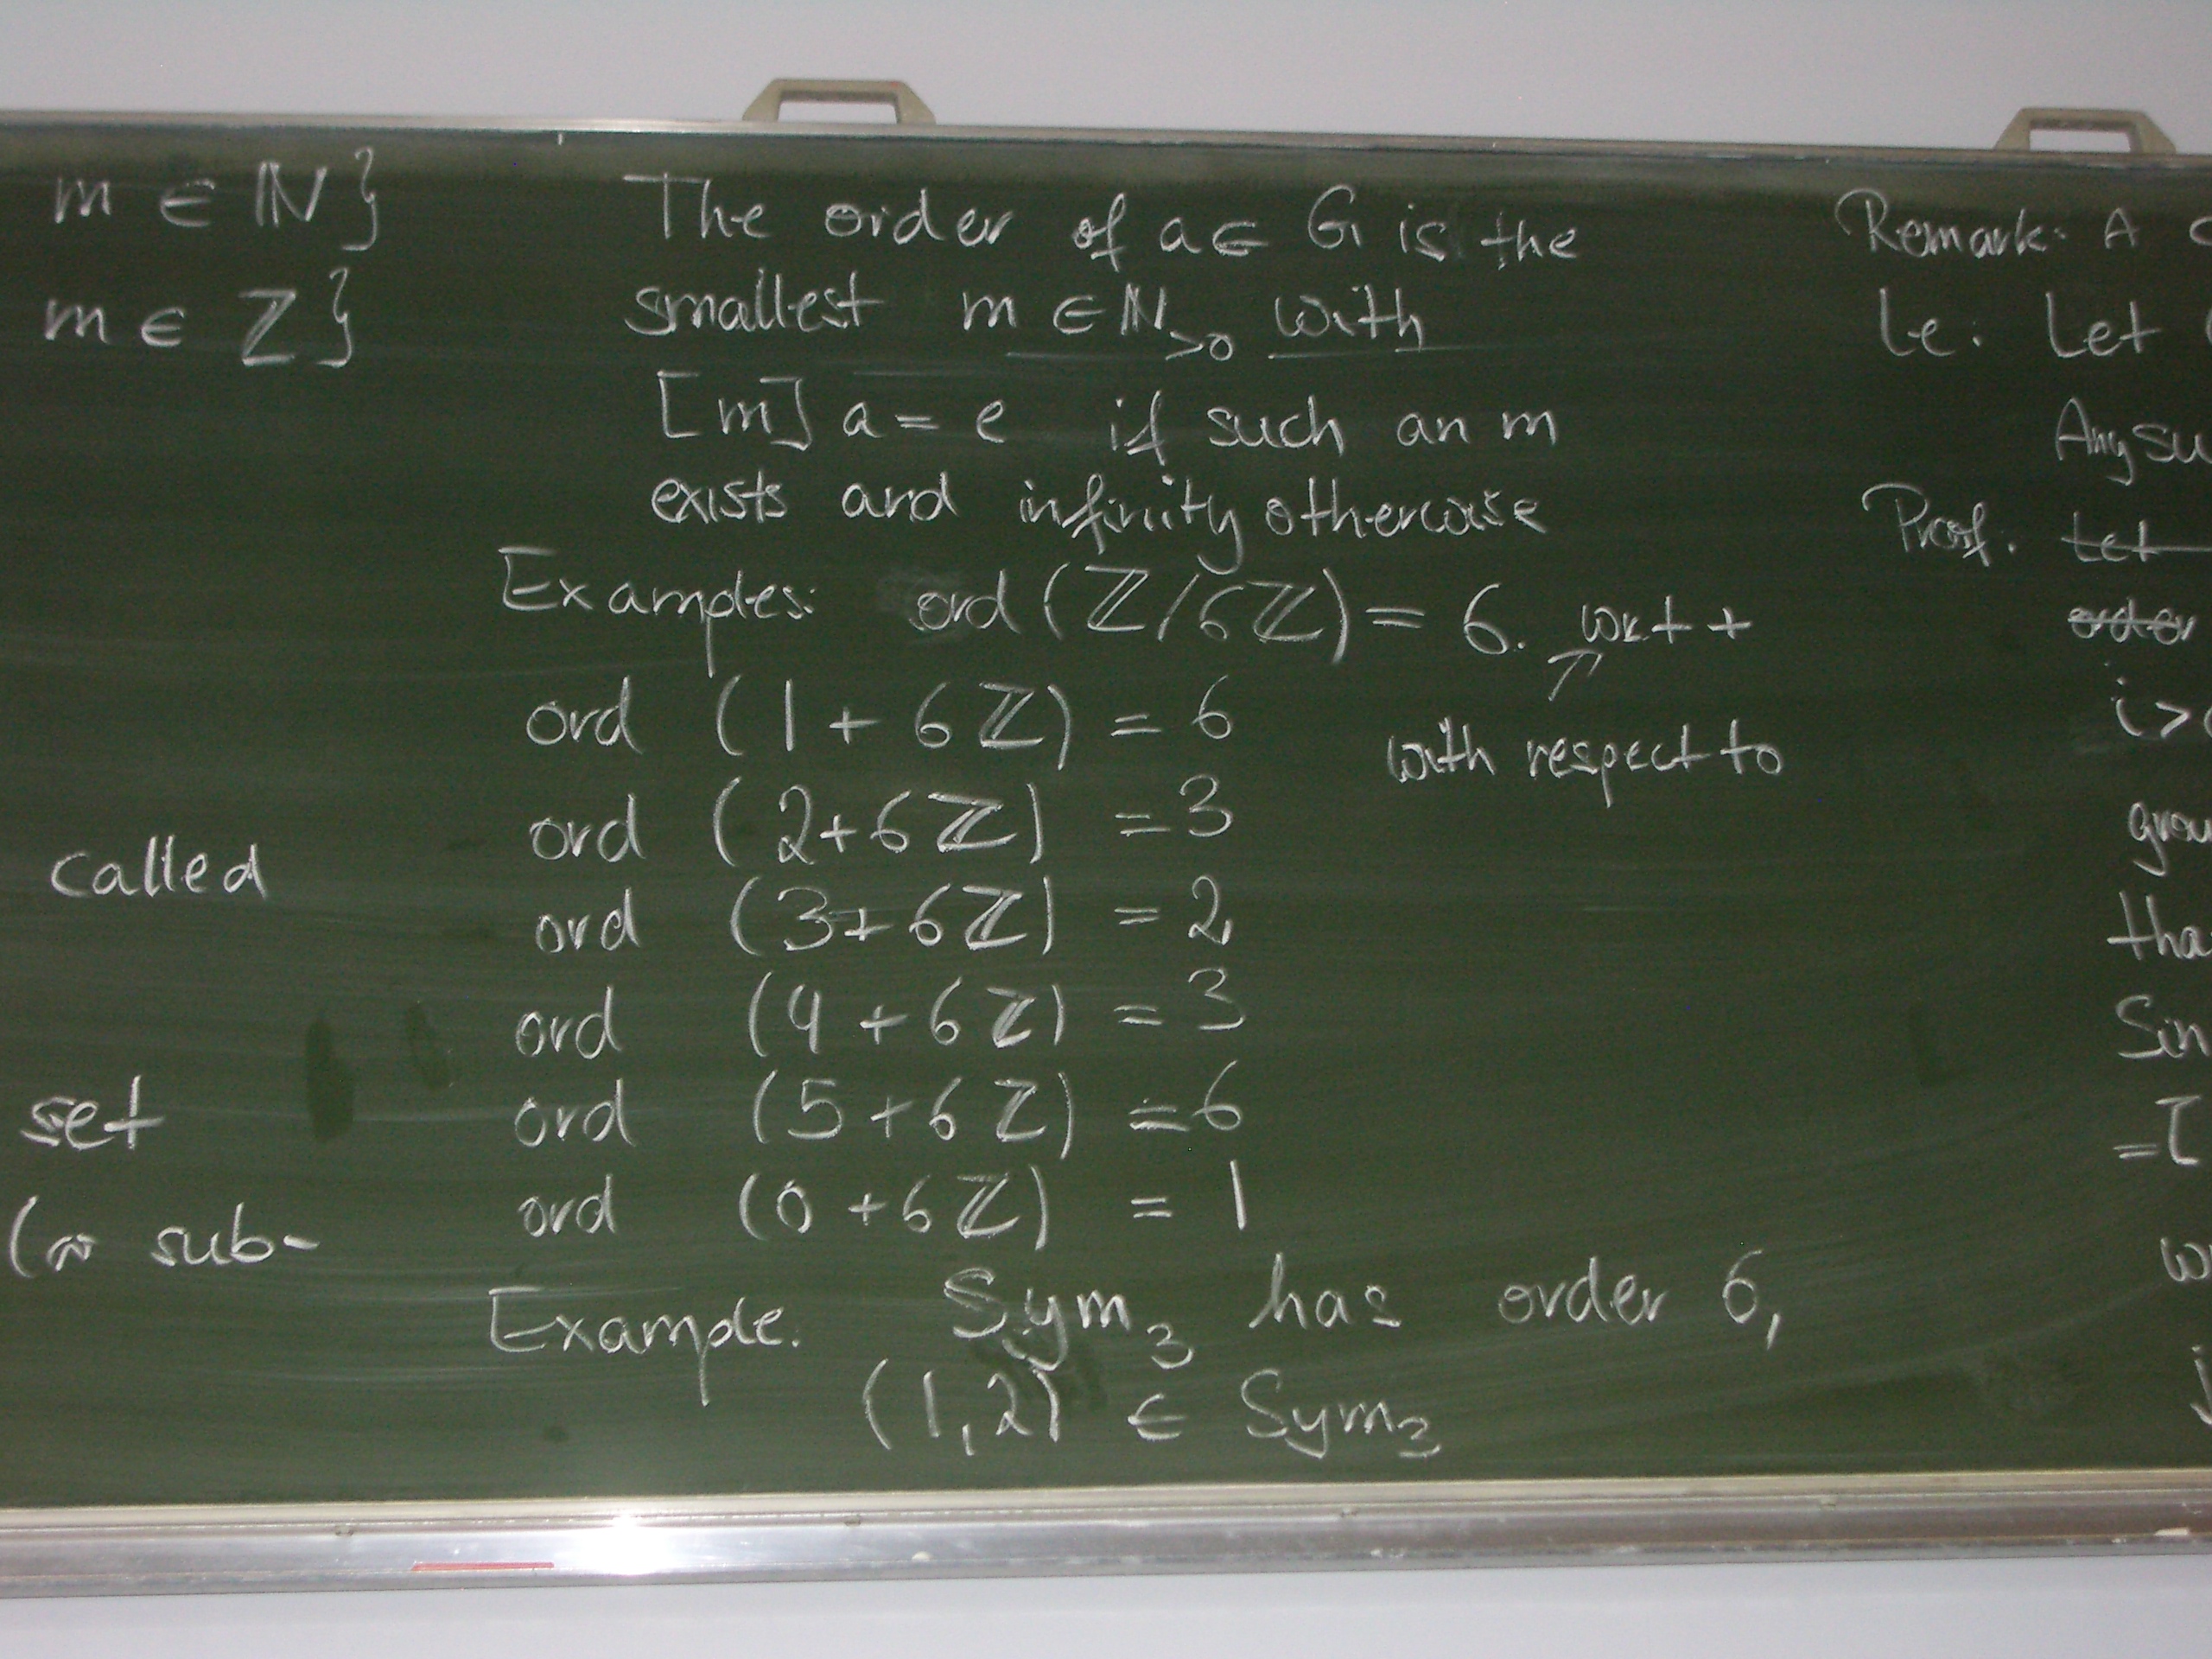 m ∈ ℕ}
m ∈ ℤ}
called
set
sub-
The order of a ∈ G is the
smallest m ∈ ℕ>0 with
[m] a = e if such an m
exists and infinity otherwise
Examples: ord (ℤ/6ℤ) = 6. wrt +
with respect to
ord (1 + 6ℤ) = 6
ord (2+6ℤ) = 3
ord (3+6ℤ) = 2
ord (4 + 6ℤ) = 3
ord (5+6ℤ) = 6
ord (0 + 6ℤ) = 1
Example. Sym₃ has order 6,
(1,2) ∈ Sym₃
Remark: A
Le: Let
Any su
Proof. Let
order
i >
grou
tha
Sin
= [
w